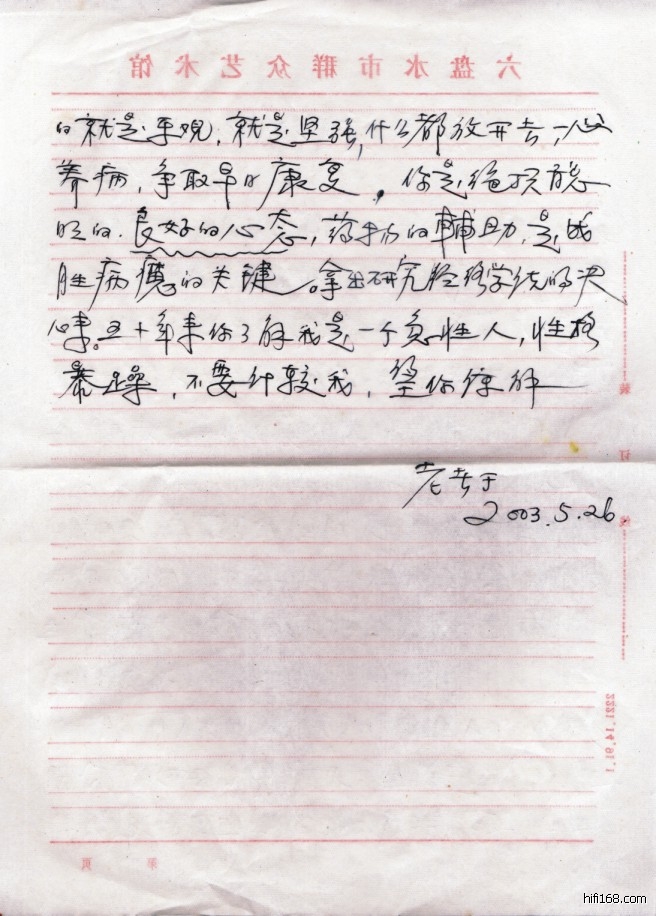 六盘水市群众艺术馆
的就是乐观，就是坚强，什么都放开去，一心
养病，争取早日康复，你是绝顶聪
明的，良好的心态，药物的辅助，是战
胜病魔的关键。拿出研究经络学说的决
心来。五十年来你了解我是一个急性人，性格
暴躁，不要计较我，望你谅解
老 于
2003.5.26
装
订
线
2221.14.91.1
第 页
hifi168.com